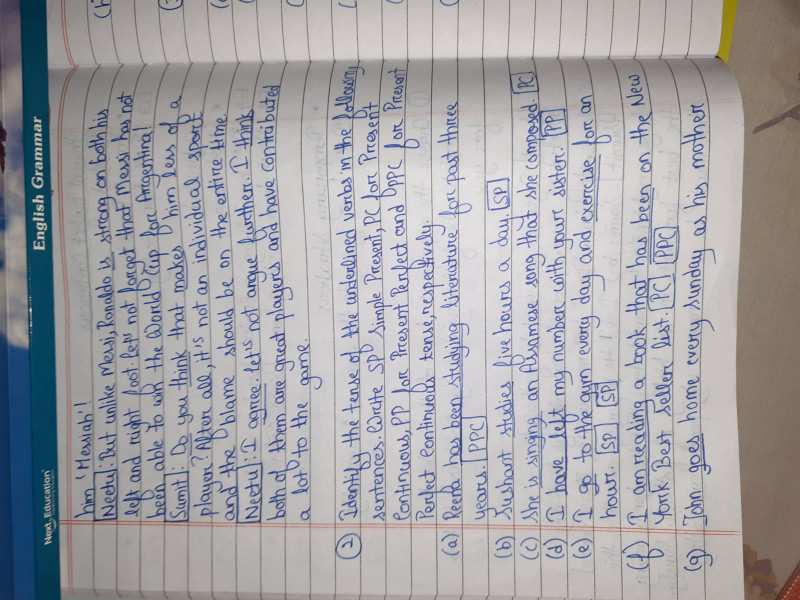 Next Education
English Grammar
him 'Messiah'!
Neetu: But unlike Messi, Ronaldo is strong on both his
left and right foot. Let's not forget that Messi has not
been able to win the World Cup for Argentina!
Sumit: Do you think that makes him less of a
player? After all, it's not an individual sport
and the blame should be on the entire time
Neetu: I agree. Let's not argue further. I think
both of them are great players and have contributed
a lot to the game.
(2) Identify the tense of the underlined verbs in the following
sentences. Write SP Simple Present, PC for Present
Continuous, PP for Present Perfect and PPC for Present
Perfect Continuous tense, respectively.
(a) Reema has been studying literature for past three
years. PPC
(b) Sushant studies five hours a day. SP
(c) She is singing an Assamese song that she composed. PC
(d) I have left my number with your sister. PP
(e) I go to the gym every day and exercise for an
hour. SP SP
(f) I am reading a book that has been on the New
York Best Seller list. PC PPC
(g) John goes home every Sunday as his mother